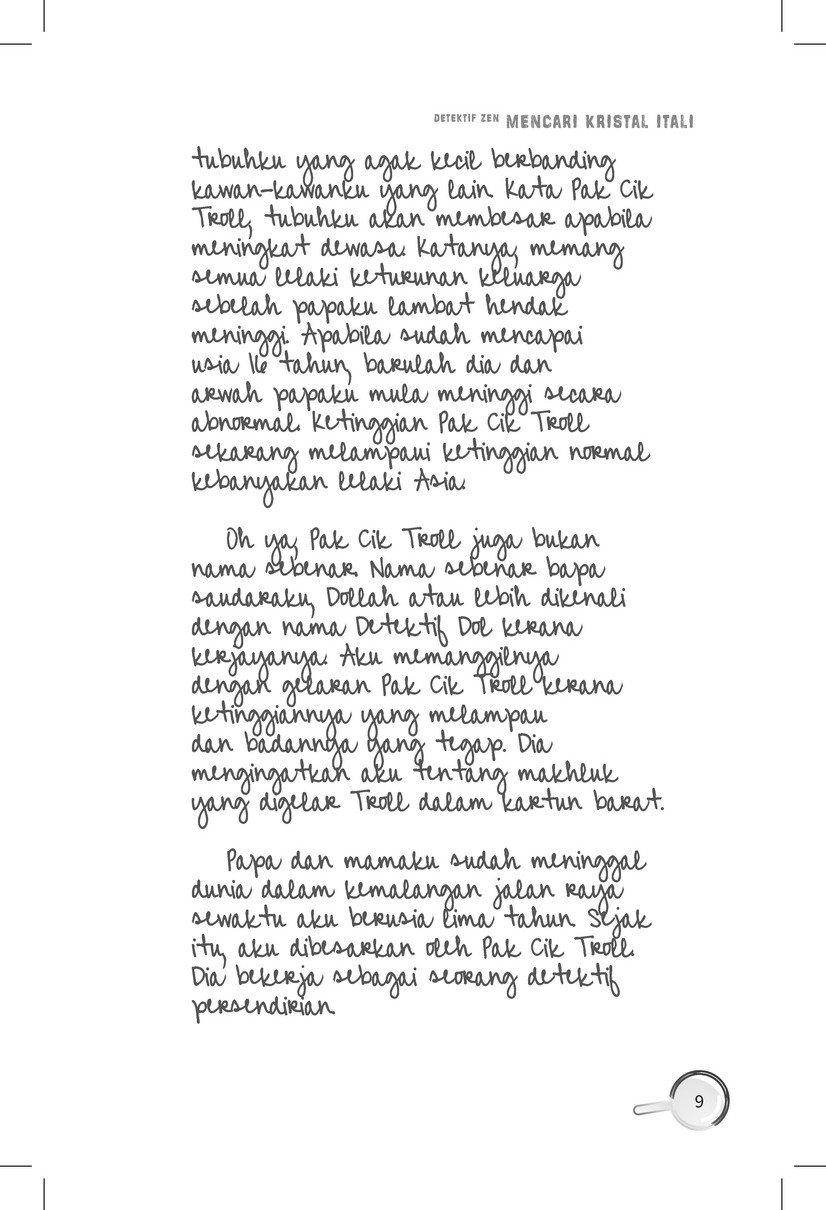 DETEKTIF ZEN MENCARI KRISTAL ITALI
tubuhku yang agak kecil berbanding
kawan-kawanku yang lain. Kata Pak Cik
Troll, tubuhku akan membesar apabila
meningkat dewasa. Katanya, memang
semua lelaki keturunan keluarga
sebelah papaku lambat hendak
meninggi. Apabila sudah mencapai
usia 16 tahun, barulah dia dan
arwah papaku mula meninggi secara
abnormal. Ketinggian Pak Cik Troll
sekarang melampaui ketinggian normal
kebanyakan lelaki Asia.
Oh ya, Pak Cik Troll juga bukan
nama sebenar. Nama sebenar bapa
saudaraku, Dollah atau lebih dikenali
dengan nama Detektif Dol kerana
kerjayanya. Aku memanggilnya
dengan gelaran Pak Cik Troll kerana
ketinggiannya yang melampau
dan badannya yang tegap. Dia
mengingatkan aku tentang makhluk
yang digelar Troll dalam kartun barat.
Papa dan mamaku sudah meninggal
dunia dalam kemalangan jalan raya
sewaktu aku berusia lima tahun. Sejak
itu, aku dibesarkan oleh Pak Cik Troll.
Dia bekerja sebagai seorang detektif
persendirian.
9